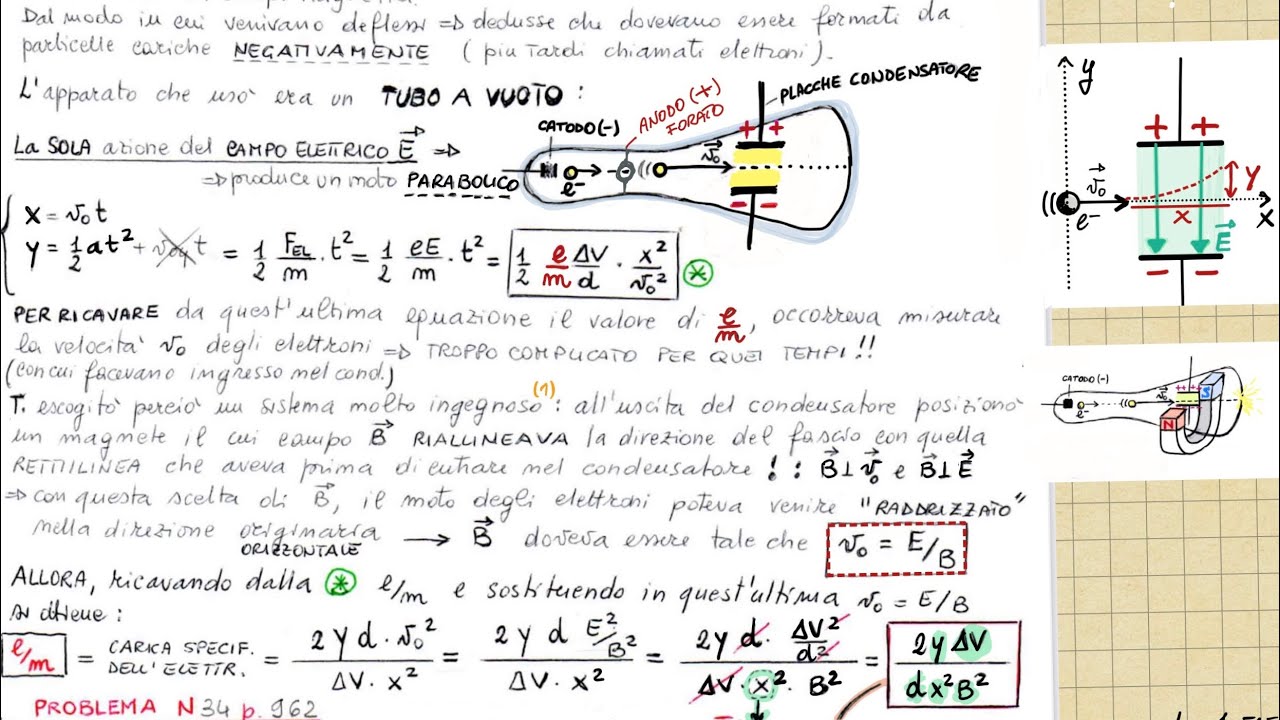 Dal modo in cui venivano deflessi => dedusse che dovevano essere formati da
particelle cariche NEGATIVAMENTE (piu tardi chiamati elettroni).
L'apparato che usò era un TUBO A VUOTO:
PLACCHE CONDENSATORE
ANODO (+)
FORATO
CATODO (-)
+ +
v₀
e⁻
- -
La SOLA azione del CAMPO ELETTRICO E =>
=> produce un moto PARABOLICO
x = v₀t
y = 1/2 at² + v₀y t = 1/2 FEL/m · t² = 1/2 eE/m · t² = 1/2 e/m ΔV/d · x²/v₀² *
PER RICAVARE da quest'ultima equazione il valore di e/m, occorreva misurare
la velocità v₀ degli elettroni => TROPPO COMPLICATO PER QUEI TEMPI!!
(con cui facevano ingresso nel cond.)
T. escogitò perciò un sistema molto ingegnoso(1): all'uscita del condensatore posizionò
un magnete il cui campo B RIALLINEAVA la direzione del fascio con quella
RETTILINEA che aveva prima di entrare nel condensatore !: B⊥v₀ e B⊥E
=> con questa scelta di B, il moto degli elettroni poteva venire "RADDRIZZATO"
nella direzione originaria → B doveva essere tale che v₀ = E/B
ORIZZONTALE
ALLORA, ricavando dalla * e/m e sostituendo in quest'ultima v₀ = E/B
si ottiene:
e/m = CARICA SPECIF. DELL'ELETTR. = 2yd·v₀²/ΔV·x² = 2yd E²/B²/ΔV·x² = 2yd·ΔV²/d²/ΔV·x²·B² = 2yΔV/dx²B²
PROBLEMA N34 p. 962
y
+ +
v₀
e⁻
y
x
x
E
- -
CATODO (-)
++++
v₀
e⁻
S
N